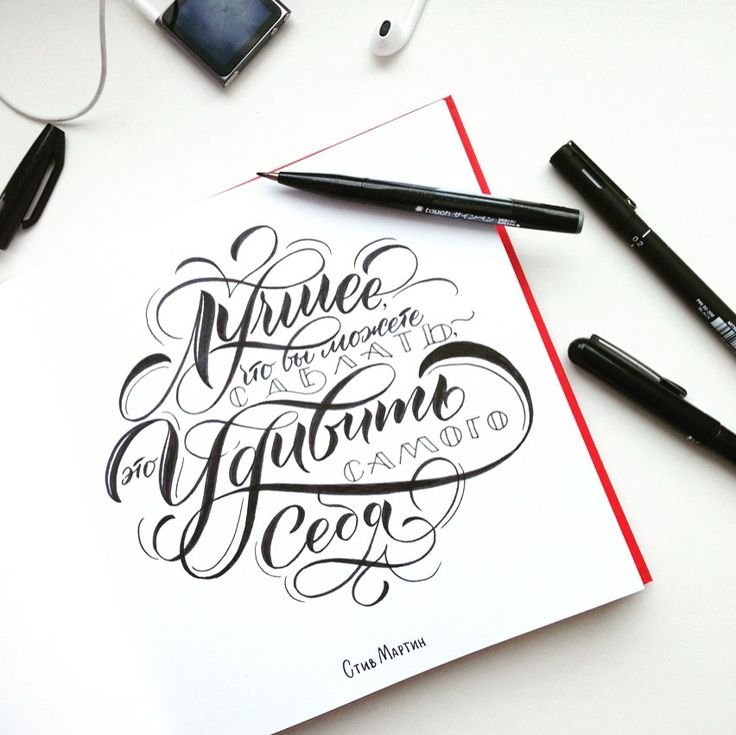 Лучшее,
что вы можете
сделать,
это Удивить
самого
Себя
Стив Мартин
touch サインペン
0.2